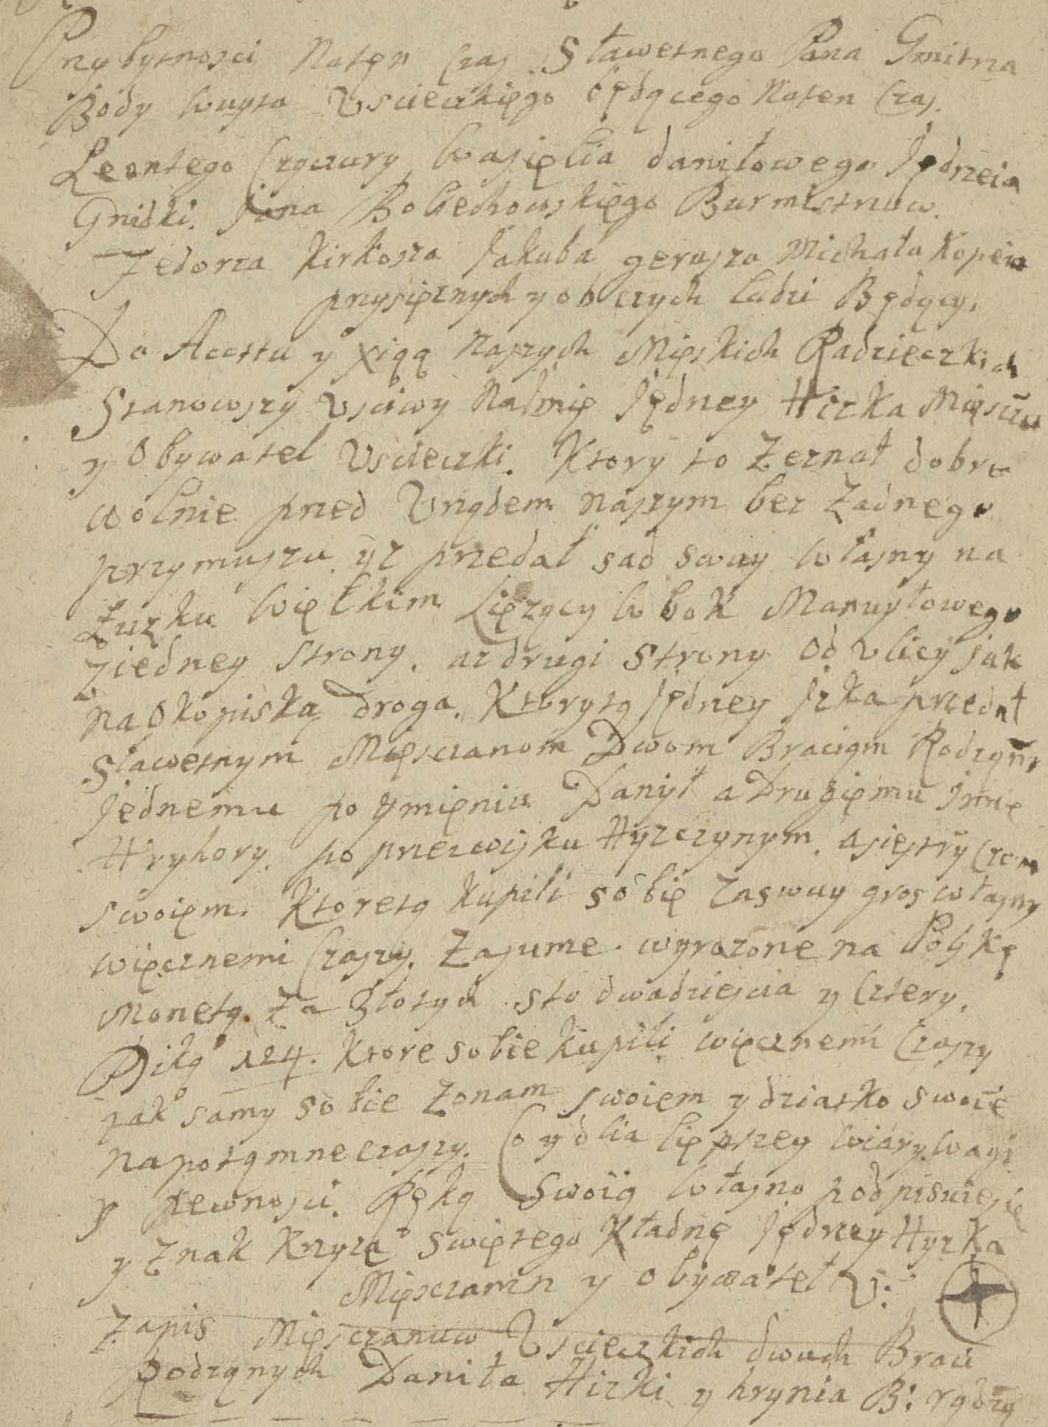 Przybytnosci Naten Czas Sławetnego Pana Gmitra
Body Wuyta Vscieczkięgo będącego Naten Czas.
Leontego Czyczury Wasięlia daniłowego Jędrzeia
Gnidki. Jana Bolechowskięgo Burmistrzow.
Fedorza Kirkosza Jakuba gerasza Michała Kopeia
przysięznych y obczych Ludzi Będący.
Do Acettu y xiąą Naszych Mięskich Radzieczkich
Stanowszy Vsciwy Naimię Jędney Hizka Mięszcz
y Obywatel Vscieczki. Ktory to Zeznał dobro
wolnie przed Vrządem naszym bez Zadnego
przymuszu yz przedał sad swuy własny na
Łuzku Więłkim Lięzący w bok Manuyłowego
z iedney strony. az drugi strony Od vlicy jak
na Okopiska Droga. Ktorytą Jędney Jzka przedał
Sławetnym Mięsczanom Dwom Braciąm Rodząny
Jednemu po ymięniu Danył a Drugięmu Jmię
Hryhory. po przezwisku Hyzczynym. asiestry Czom
swoięm. Ktoretą kupili sobię Zaswuy gros własny
więcznemi Czaszy. Zasume wyrazone na Polskę
Monetą. Za Złotych sto dwadziescia y Cztery.
Diką 124. Ktore sobie kupili więcznemi Czaszy
jak samy sobie Zonam swoiem y dziatko swoie
napotąmne czaszy. Co y dlia liępszey wiary wagi
y pewnosci. Ręką Swoią własno podpisuiesię
y Znak Krzyza Swiętego Kładnę Jędrzey Hyzka
Mięsczanin y obywatel V:
Zapis Mięsczanuw Vscieczkich dwuch Braci
Rodząnych Daniła Hizki y hrynia B: rądzą